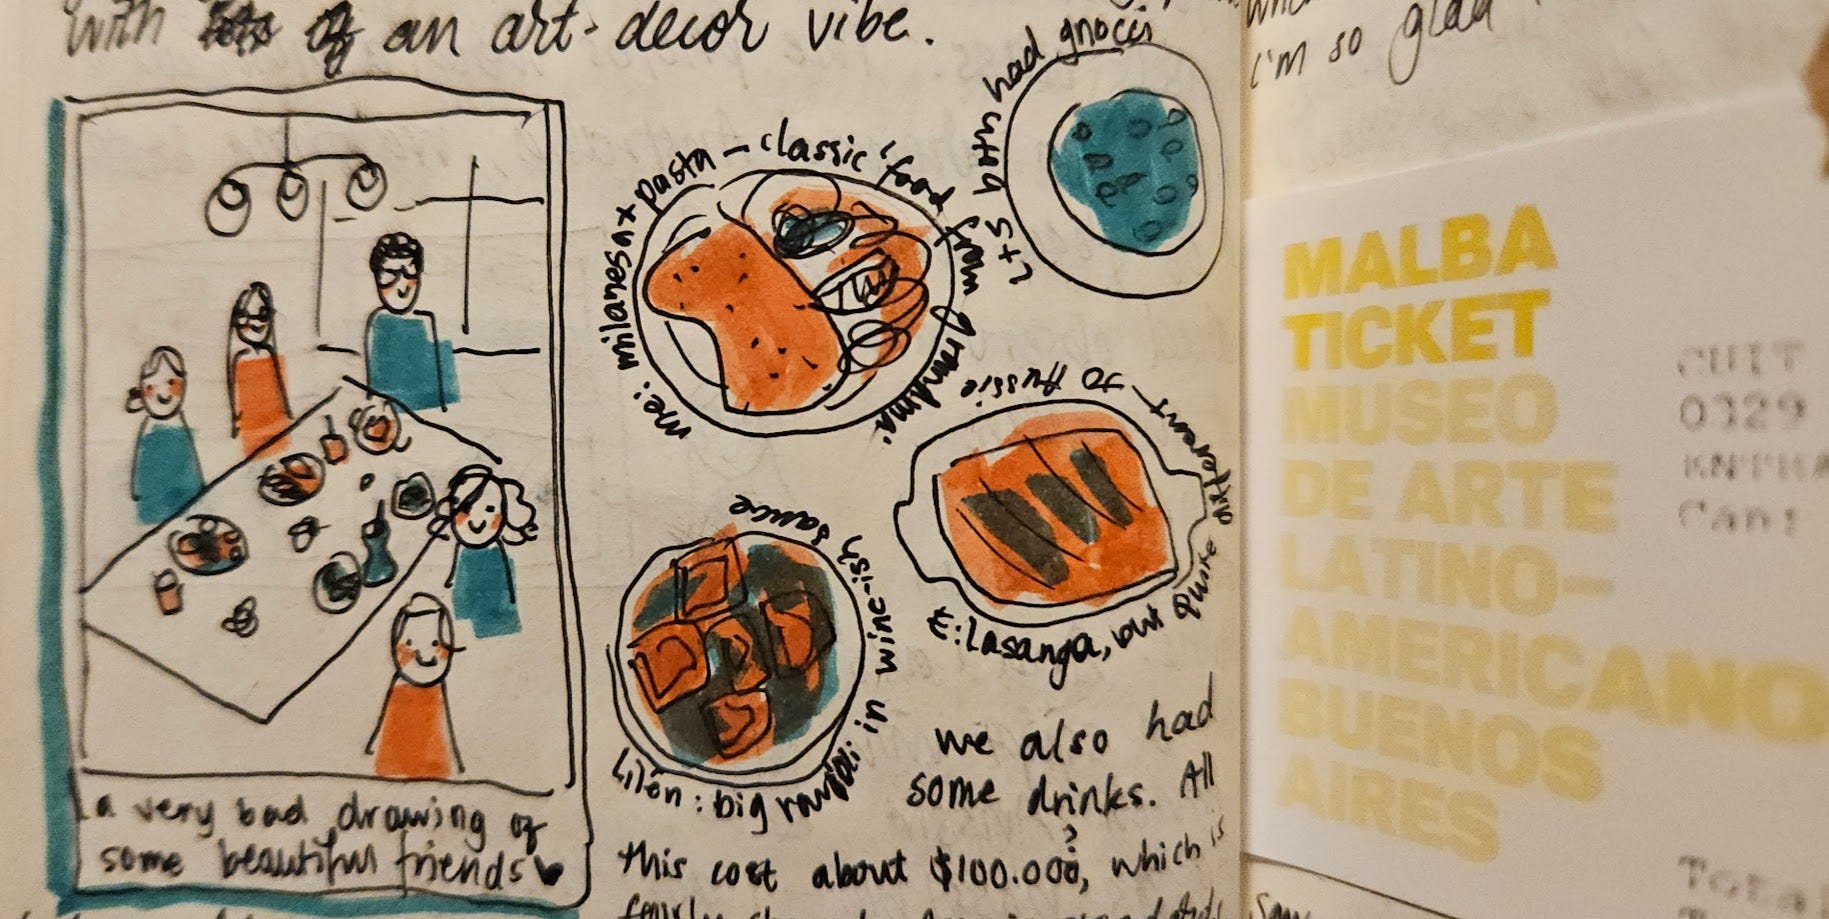 with an art-decor vibe.
a very bad drawing of
some beautiful friends
me: milanesa + pasta - 'classic' food from grandma'
L+S both had gnocci
£: Lasanga, but quite different to Aussie or
Lilén: big ravioli in wine-ish sauce
we also had
some drinks. All
this cost about $100.000?, which is
I'm so glad
MALBA
TICKET
MUSEO
DE ARTE
LATINO-
AMERICANO
BUENOS
AIRES
CUIT
0329
Cant
Total